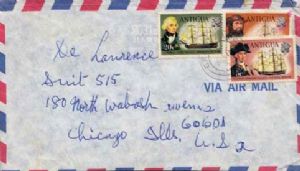 ANTIGUA
20c
ANTIGUA
ANTIGUA
De Lawrence
Suit 515
180 North Wabash avenue
60601
Chicago Ills, U.S.a
VIA AIR MAIL